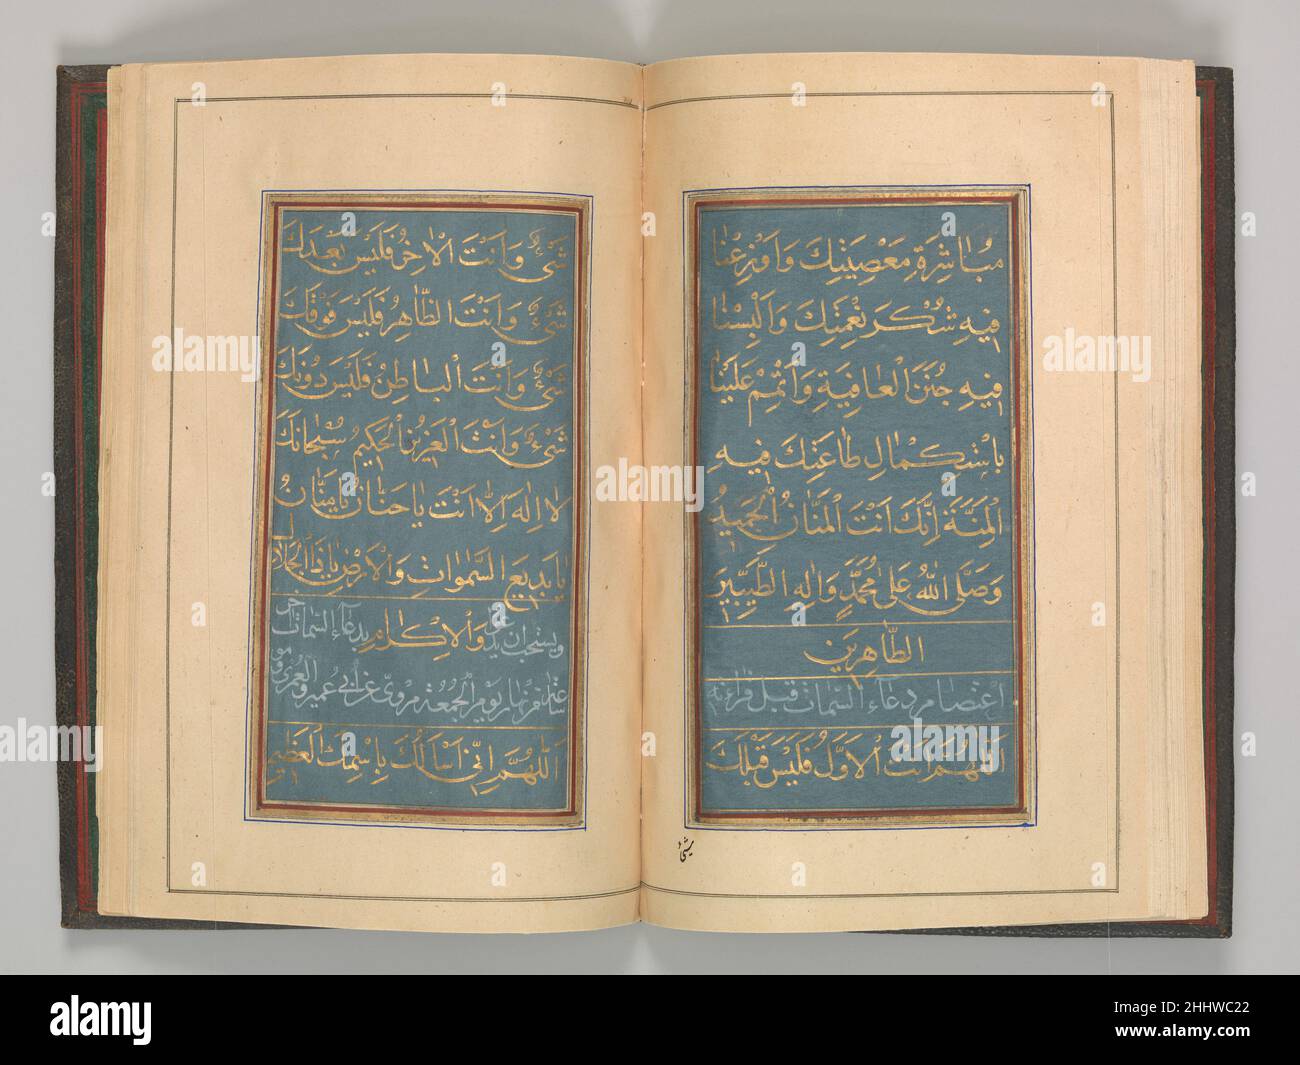 مُبَاشَرَةِ مَعْصِيَتِكَ وَاَوْزِعْنَا
فِيهِ شُكْرَ نِعْمَتِكَ وَاَلْبِسْنَا
فِيهِ جُنَنَ الْعَافِيَةِ وَاَتْمِمْ عَلَيْنَا
بِاسْتِكْمَالِ طَاعَتِكَ فِيهِ
الْمِنَّةَ اِنَّكَ اَنْتَ الْمَنَّانُ الْحَمِيدُ
وَصَلَّى اللّٰهُ عَلٰى مُحَمَّدٍ وَاٰلِهِ الطَّيِّبِينَ
الطَّاهِرِينَ
دعاء السمات قبل قراءته
اَللّٰهُمَّ اَنْتَ الْاَوَّلُ فَلَيْسَ قَبْلَكَ
شئ
شَىْءٌ وَاَنْتَ الْاٰخِرُ فَلَيْسَ بَعْدَكَ
شَىْءٌ وَاَنْتَ الظَّاهِرُ فَلَيْسَ فَوْقَكَ
شَىْءٌ وَاَنْتَ الْبَاطِنُ فَلَيْسَ دُونَكَ
شَىْءٌ وَاَنْتَ الْعَزِيزُ الْحَكِيمُ سُبْحَانَكَ
لَا اِلٰهَ اِلَّا اَنْتَ يَا حَنَّانُ يَا مَنَّانُ
يَا بَدِيعَ السَّمٰوَاتِ وَالْاَرْضِ يَا ذَا الْجَلَالِ
وَالْاِكْرَامِ ويستحب ان يدعى بدعاء السمات اخر
يوم الجمعة مروى عن ابى عمرو العمرى
اَللّٰهُمَّ اِنِّى اَسْاَلُكَ بِاسْمِكَ الْعَظِيمِ
alamy
Image ID: 2HHWC22
www.alamy.com